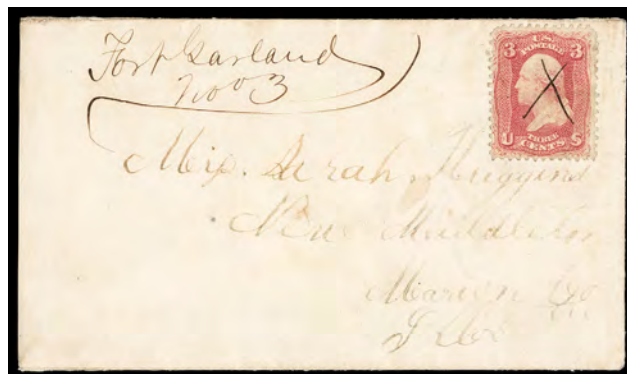 Fort Garland
Nov 3
3 U.S. POSTAGE 3
U THREE CENTS S
Miss. Sarah Huggins
New Middleton
Marion Co
Ills